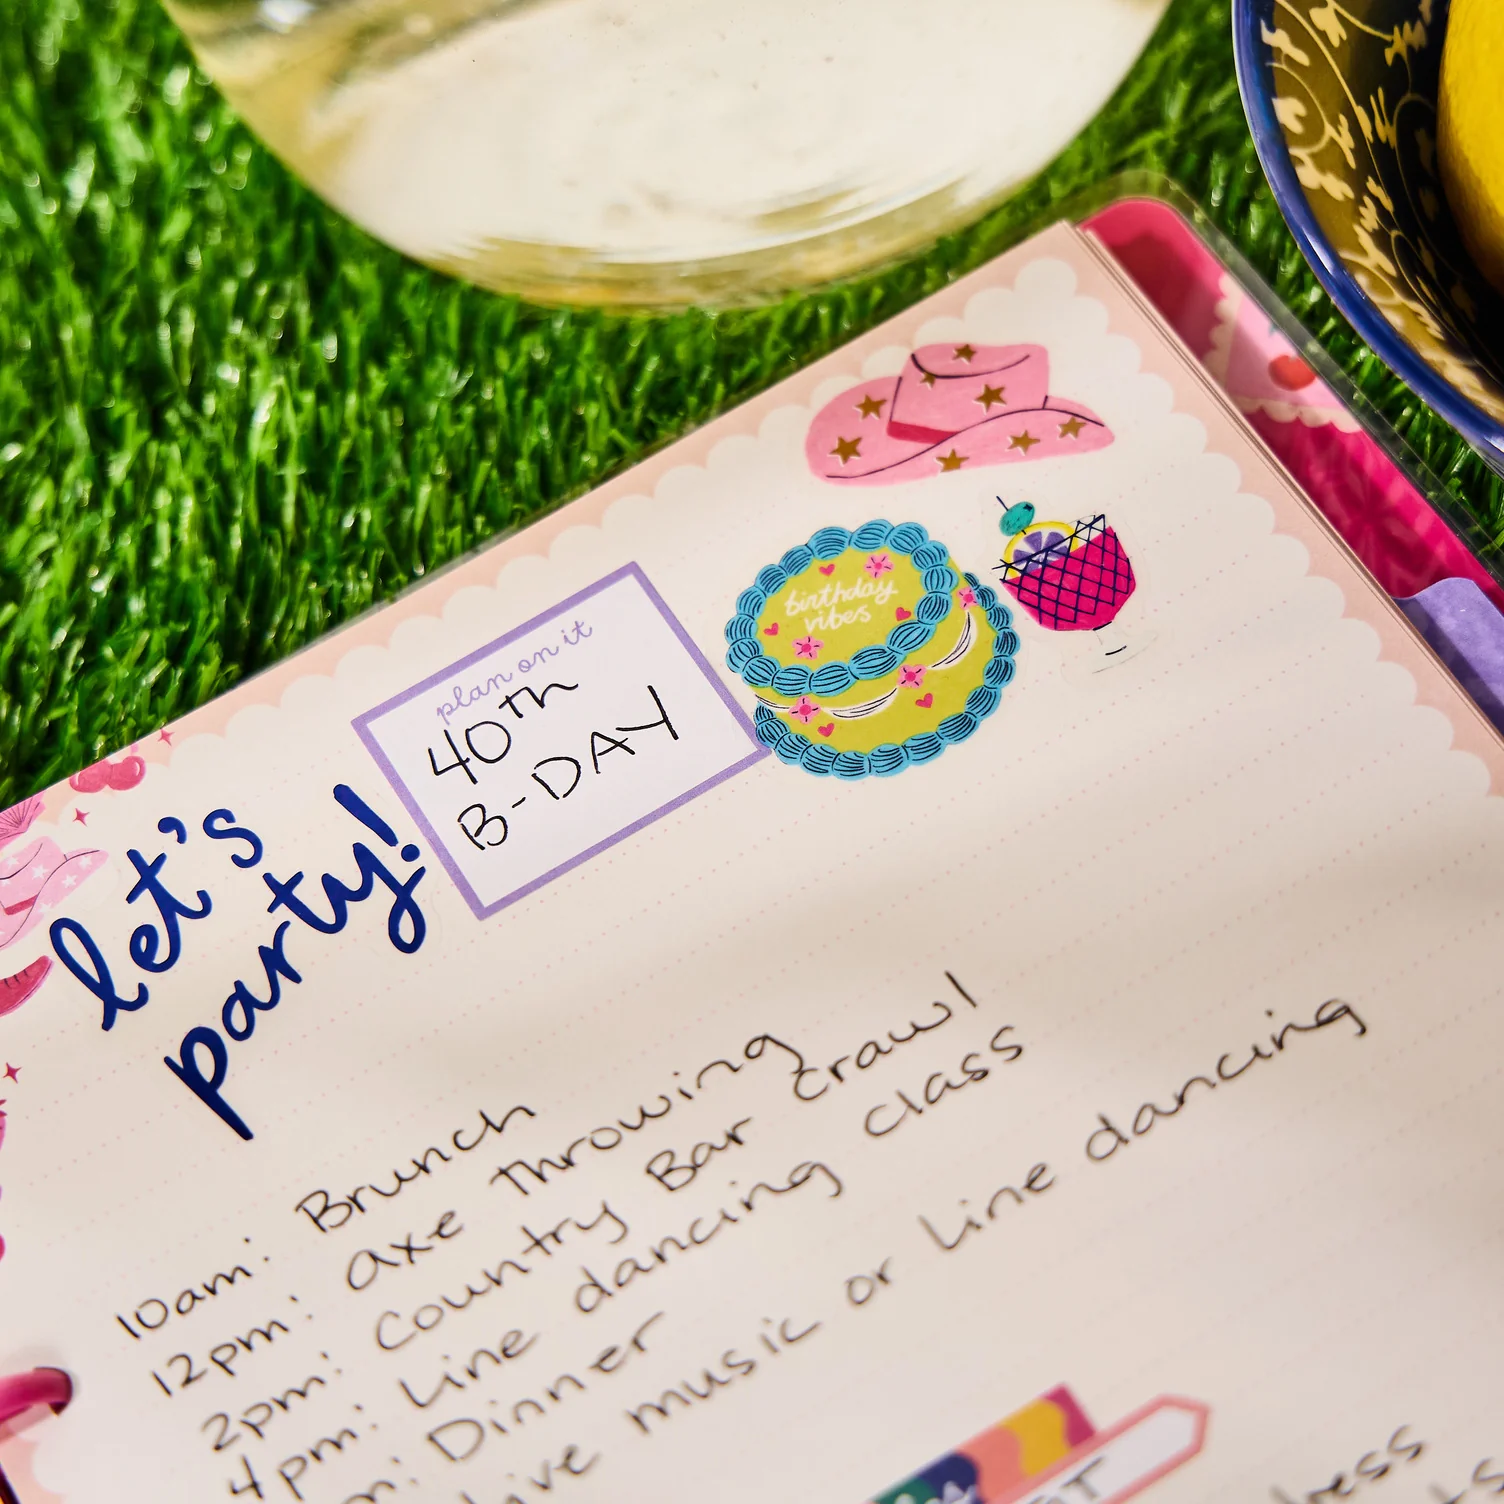 plan on it
40th
B-DAY
birthday
vibes
let's
party!
10am: Brunch
12pm: axe throwing
2pm: Country Bar crawl
4pm: Line dancing class
m: Dinner
live music or Line dancing